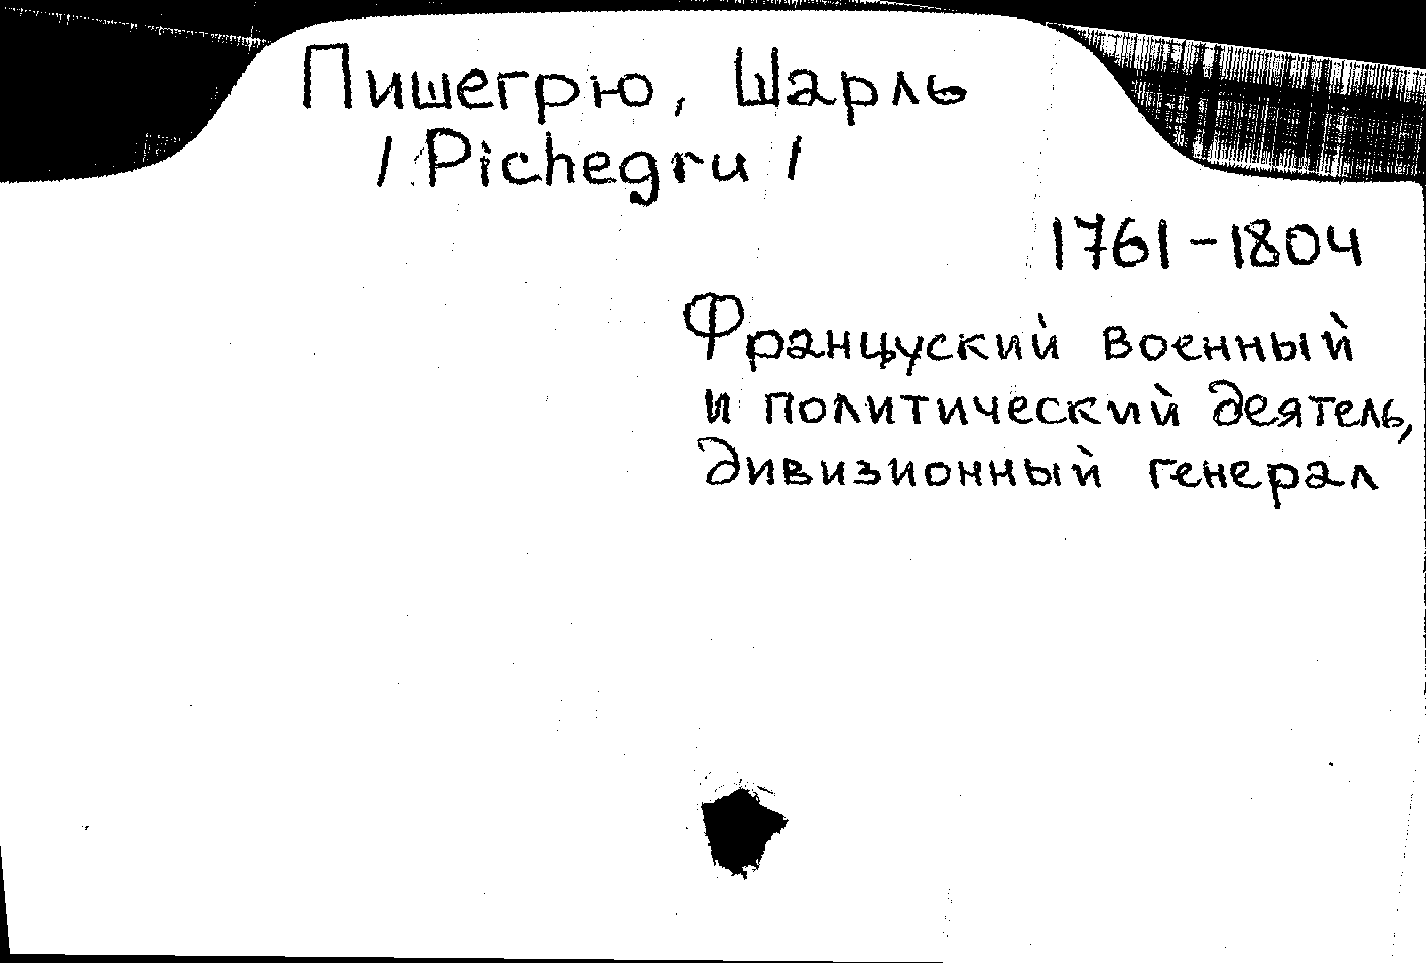 Пишегрю, Шарль
/ Pichegru /
1761-1804
Француский военный
и политический деятель,
дивизионный генерал